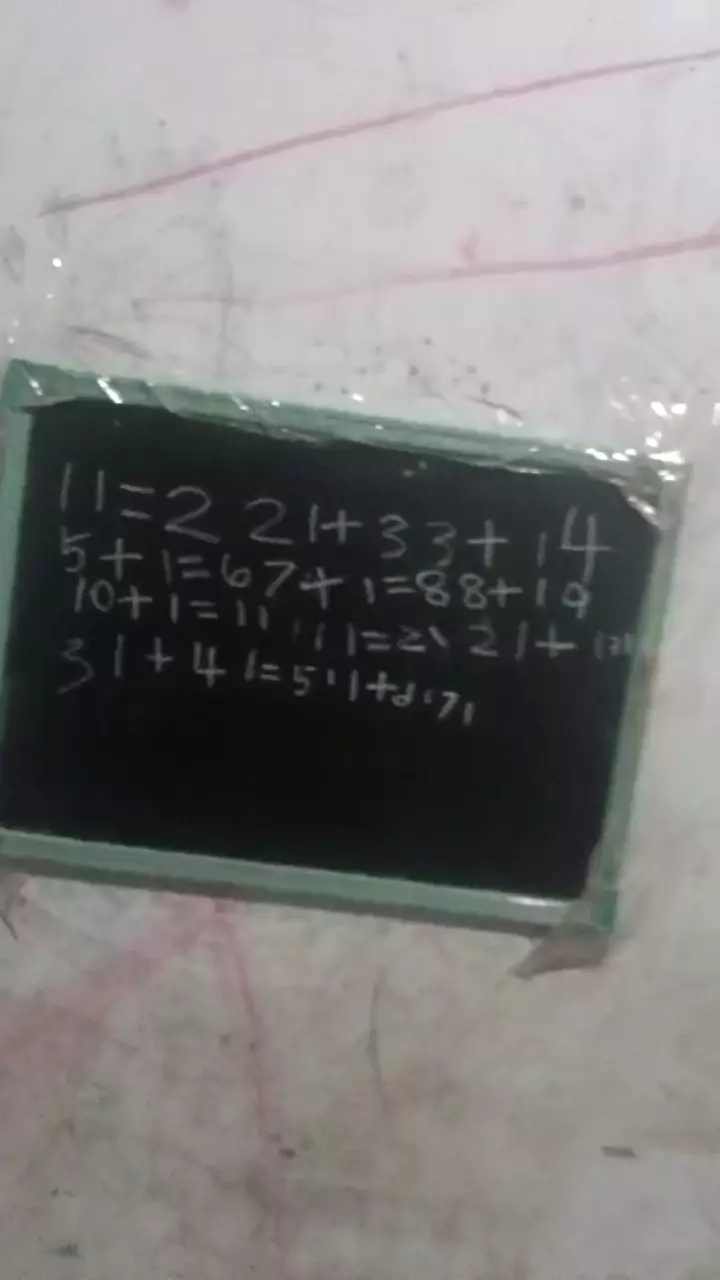 11=2 21+33+14
5+1=67+1=88+19
10+1=11 111=21 21+
31+41=5